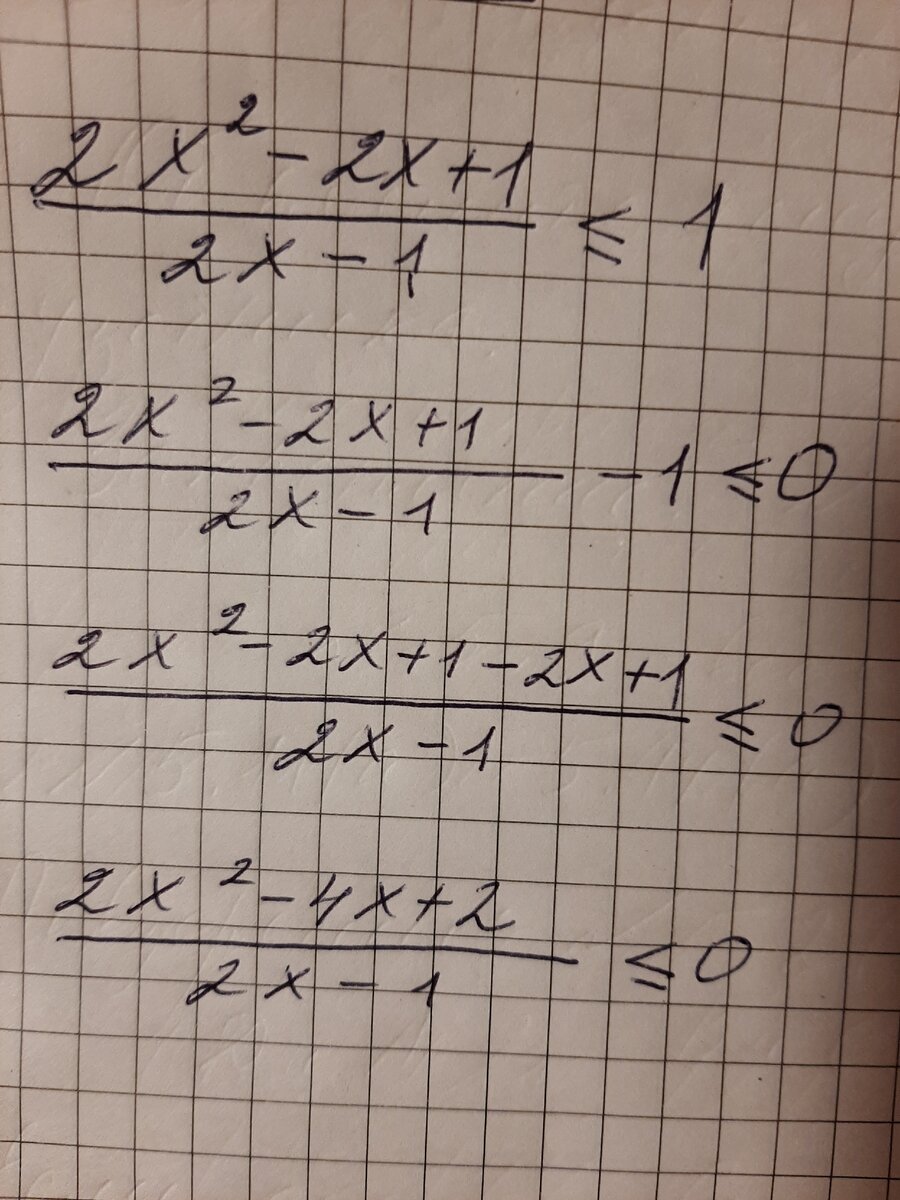 2x² - 2x + 1
2x - 1 ≤ 1
2x² - 2x + 1
2x - 1 - 1 ≤ 0
2x² - 2x + 1 - 2x + 1
2x - 1 ≤ 0
2x² - 4x + 2
2x - 1 ≤ 0